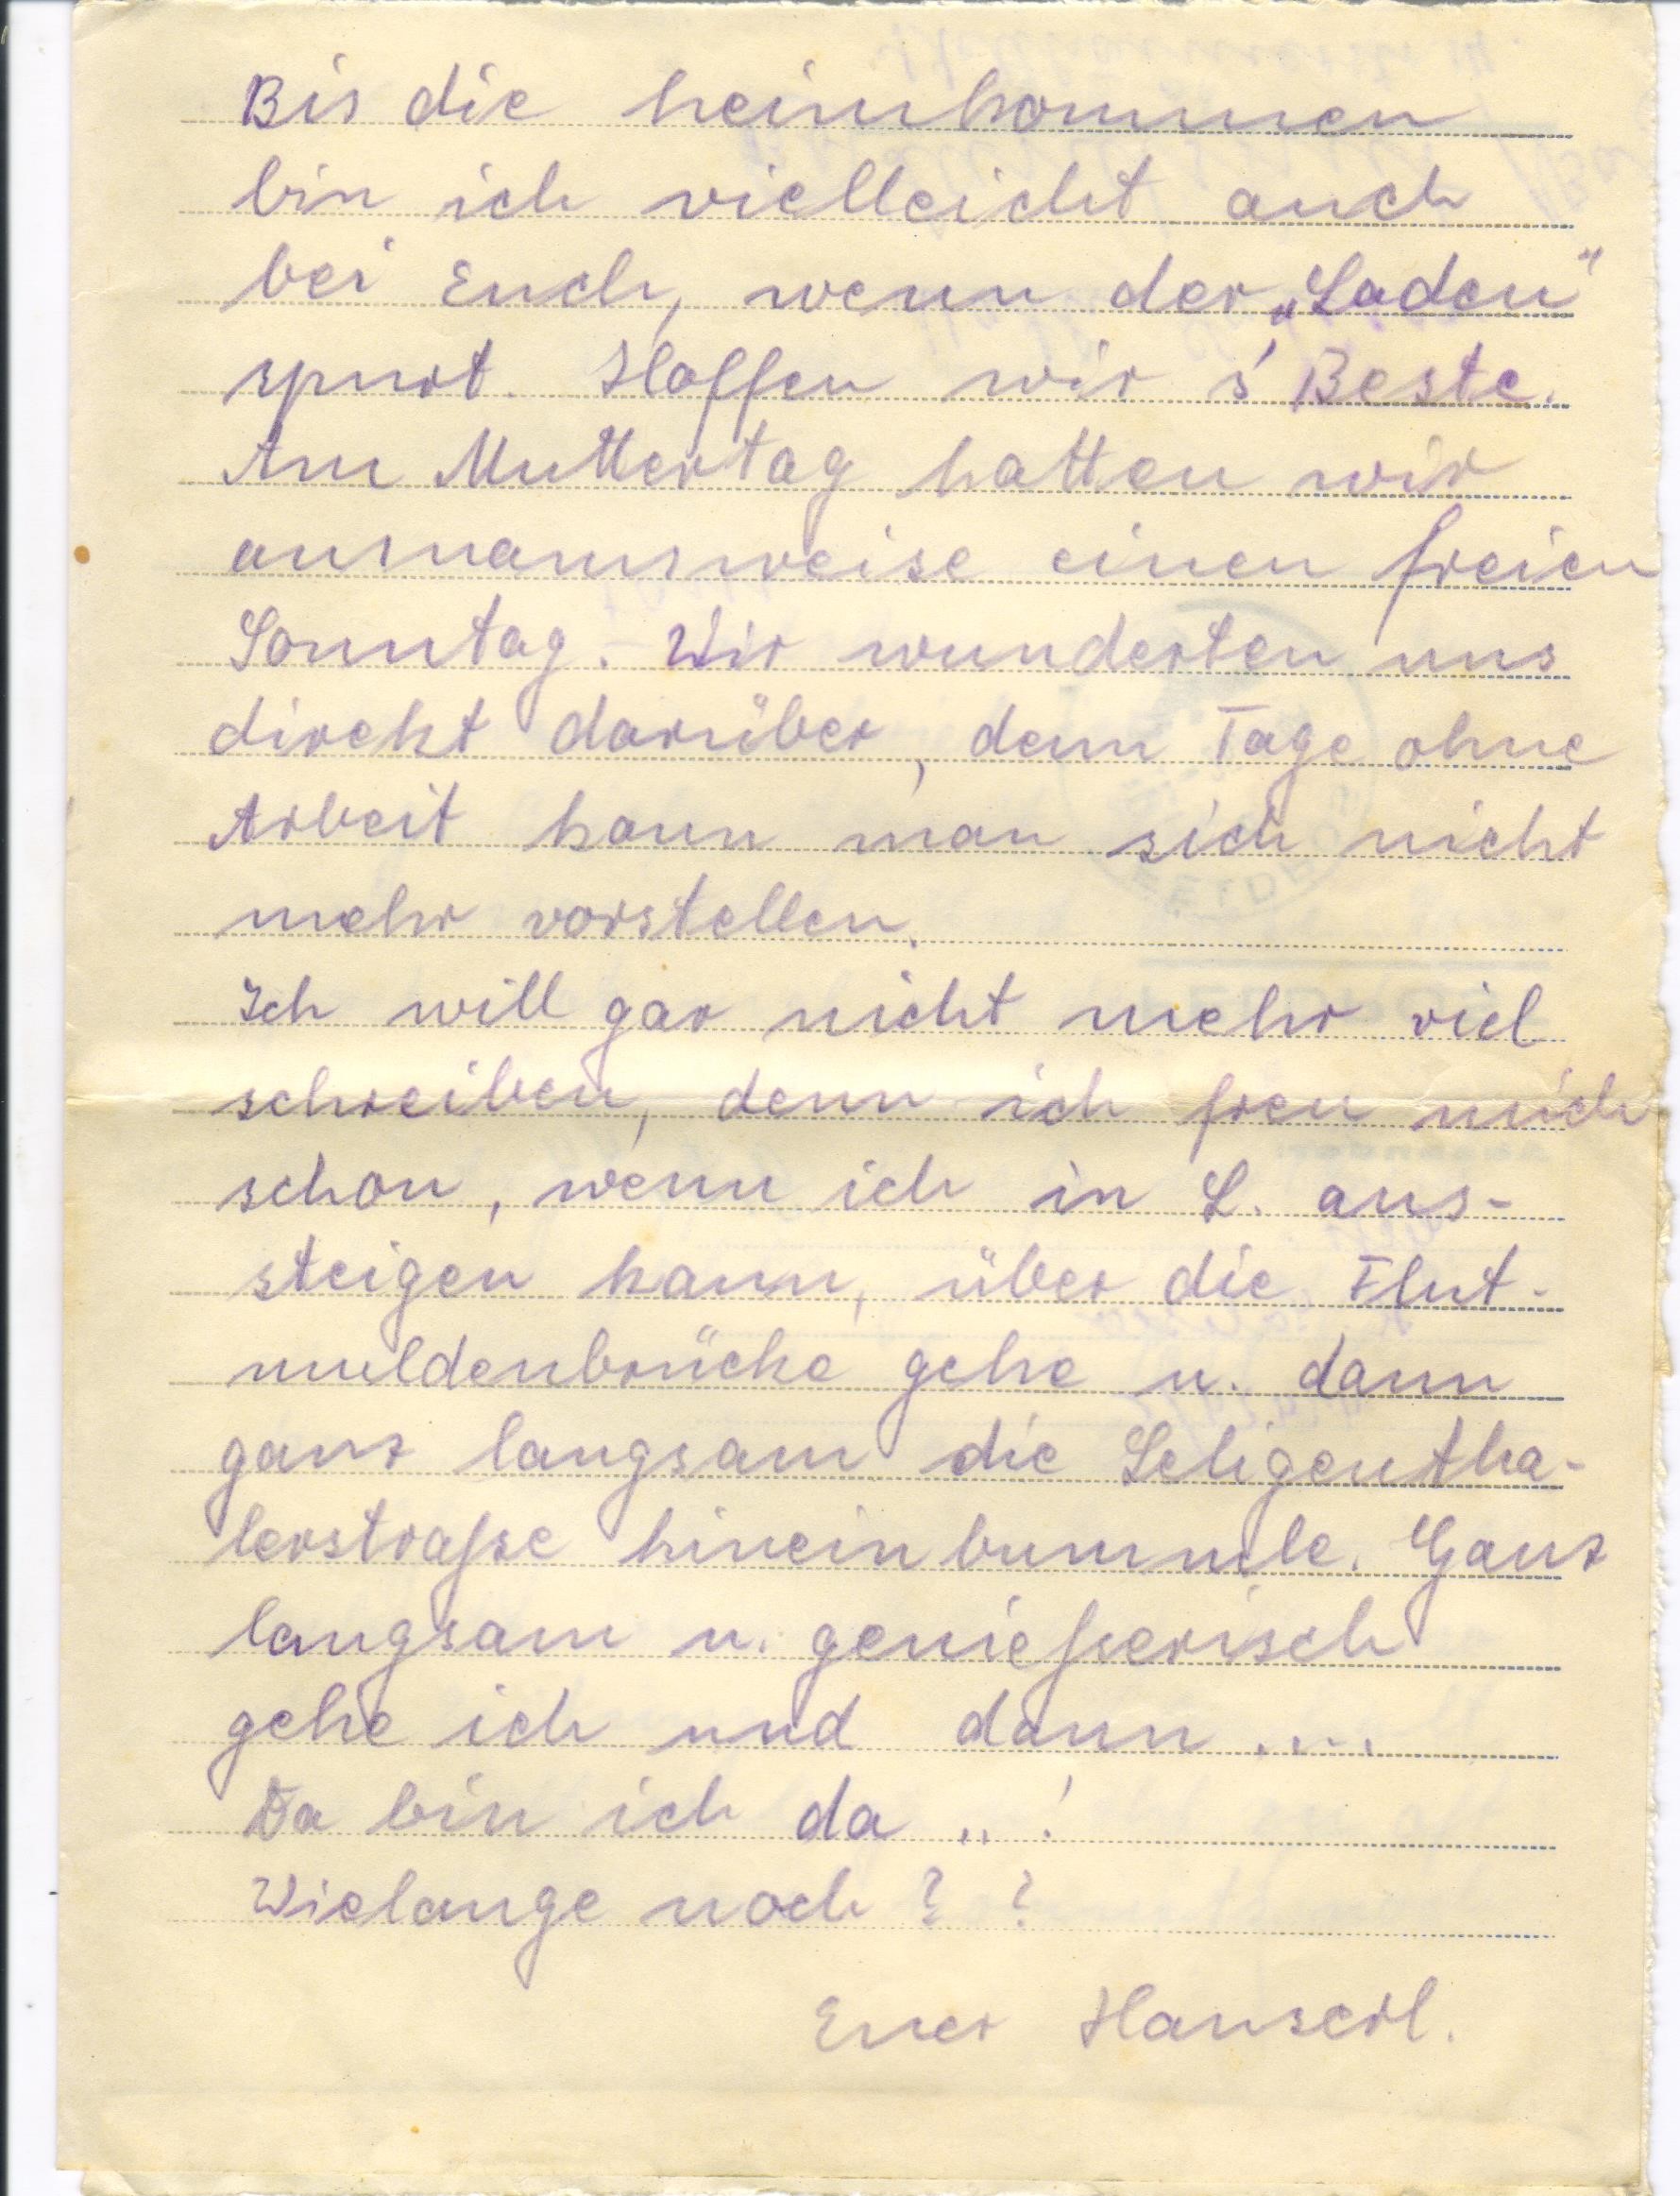 Bis die heimkommen
bin ich vielleicht auch
bei Euch, wenn der „Laden"
spurt. Hoffen wir s' Beste.
Am Muttertag hatten wir
ausnamsweise einen freien
Sonntag. Wir wunderten uns
direkt darüber, denn Tage ohne
Arbeit kann man sich nicht
mehr vorstellen.
Ich will gar nicht mehr viel
schreiben, denn ich freu mich
schon, wenn ich in L. aus-
steigen kann, über die Flut-
muldenbrücke gehe u. dann
ganz langsam die Seligentha-
lerstraße hineinbummle. Ganz
langsam u. genießerisch
gehe ich und dann ....
Da bin ich da .. !
Wielange noch ? ?
Euer Hanserl.